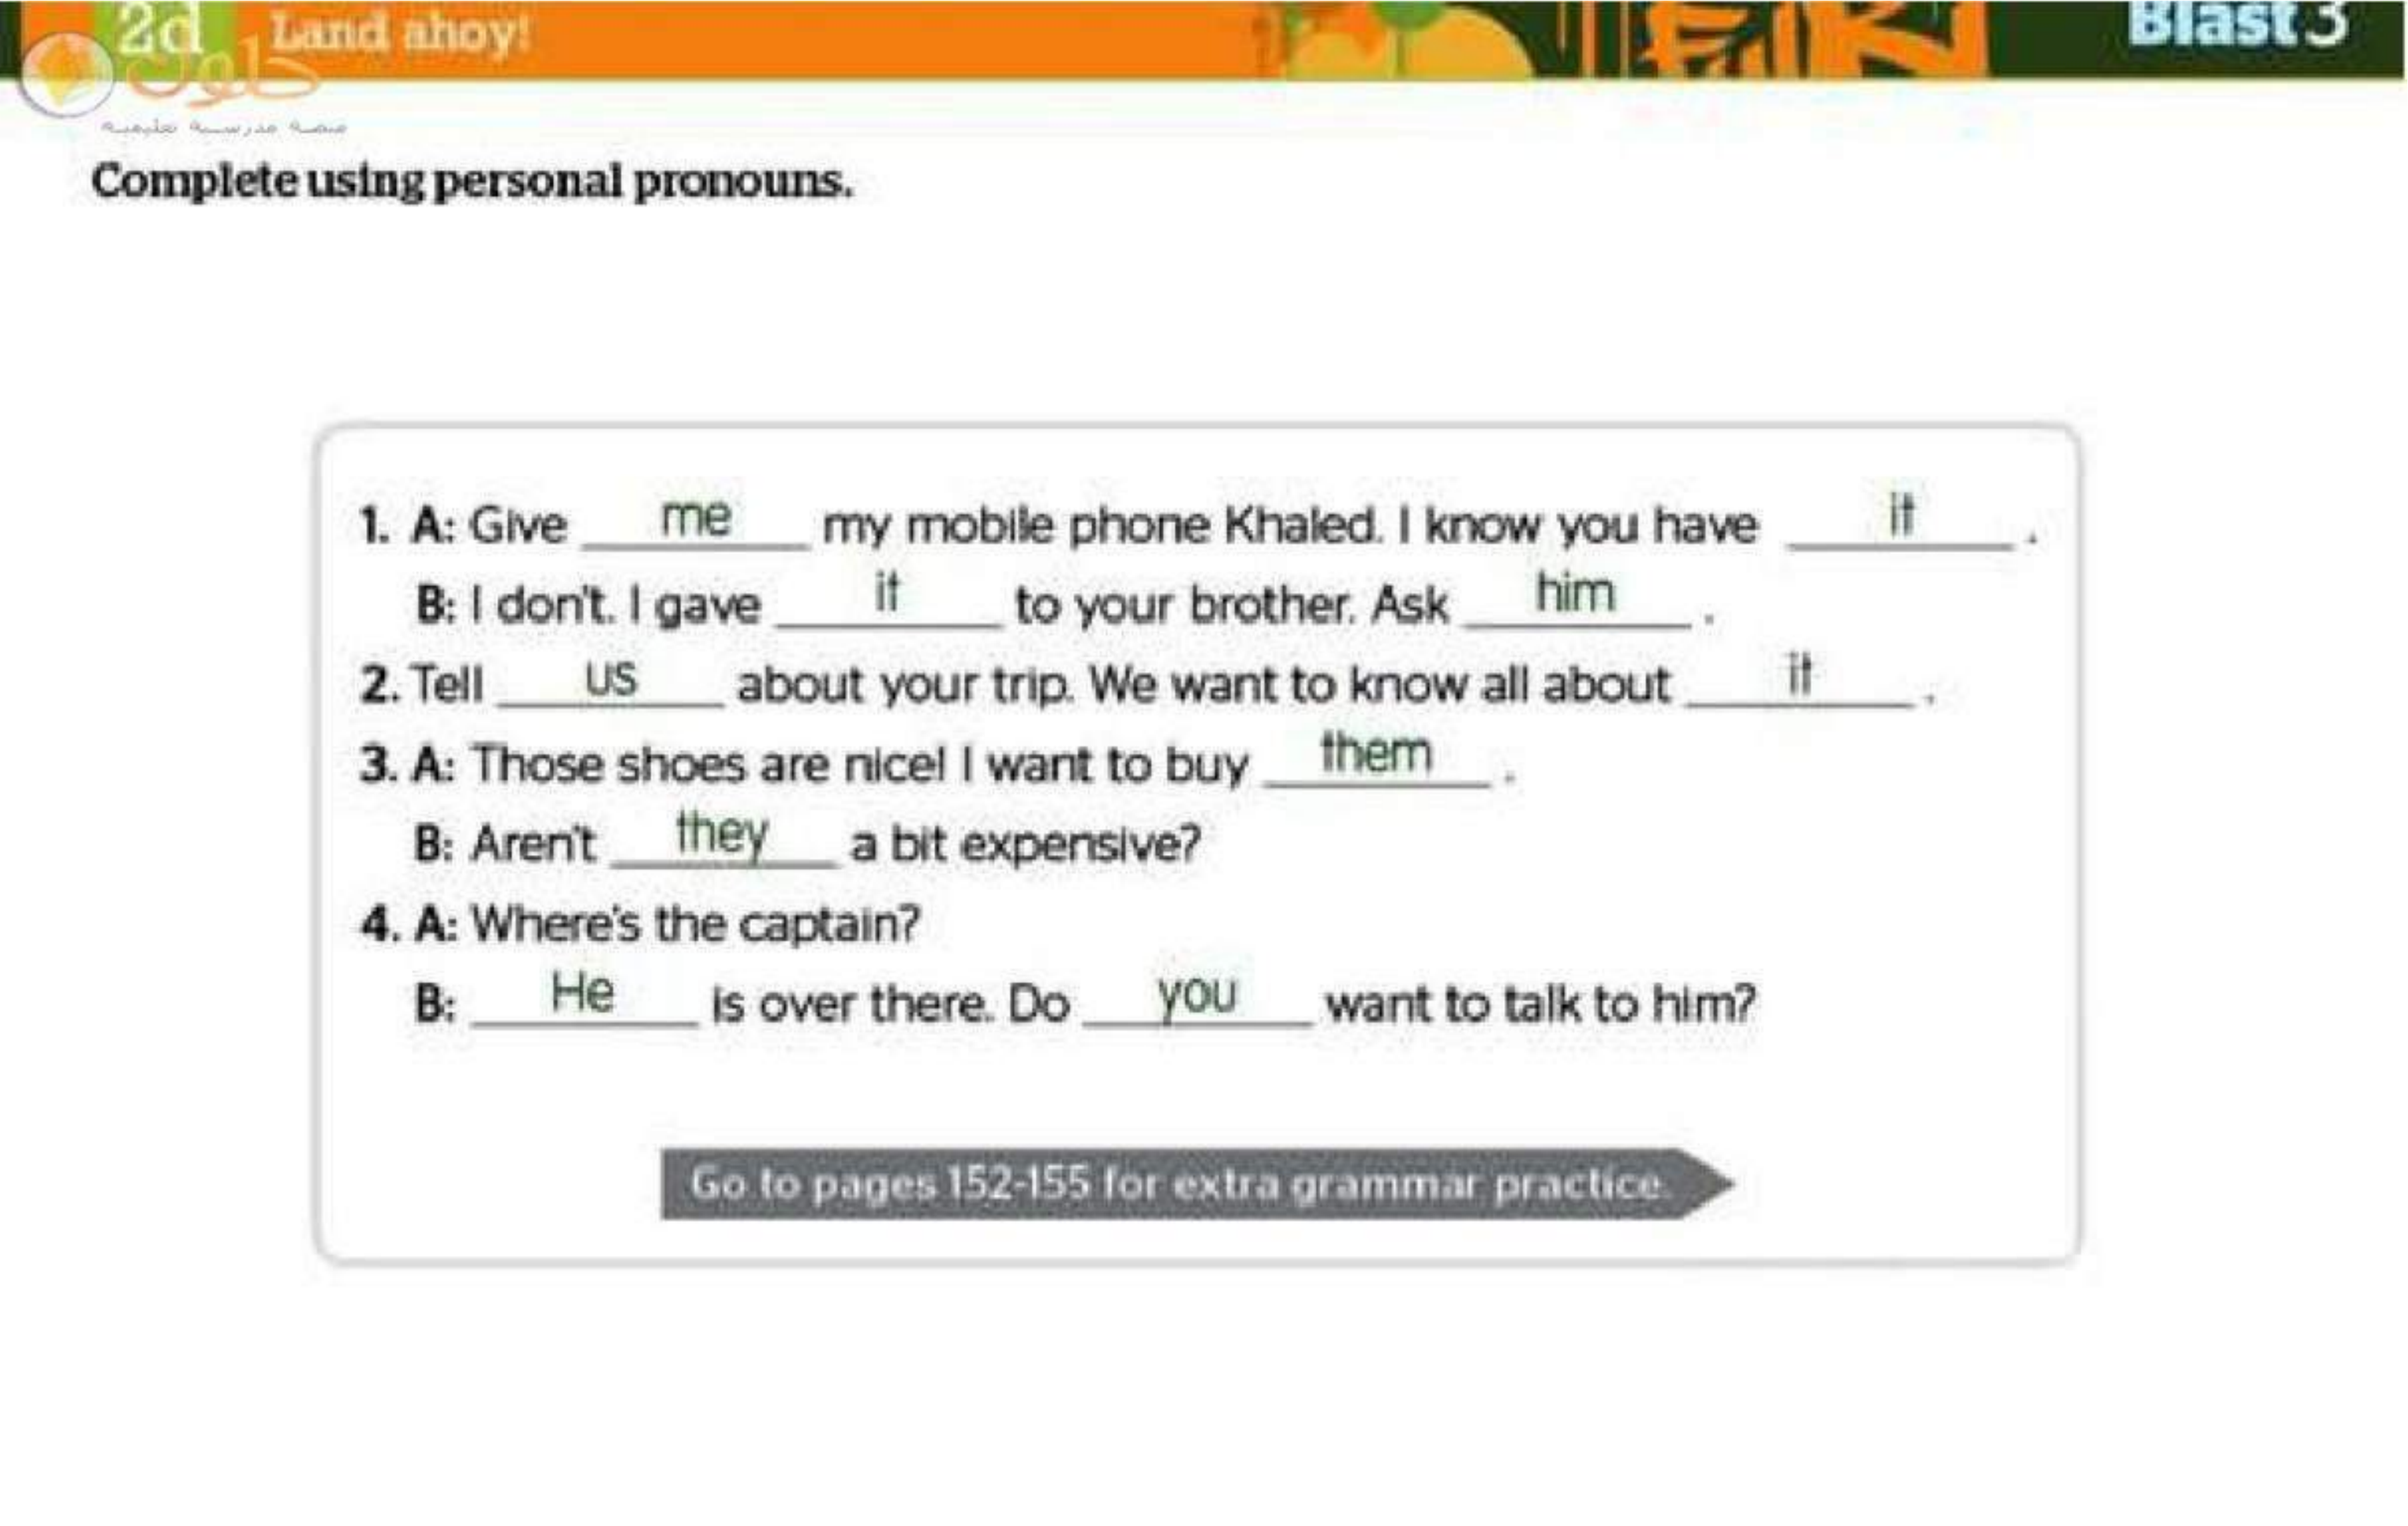 2d Land ahoy!
Blast 3
حلول
منصة مدرسية تعليمية
Complete using personal pronouns.
1. A: Give me my mobile phone Khaled. I know you have it .
B: I don't. I gave it to your brother. Ask him .
2. Tell us about your trip. We want to know all about it .
3. A: Those shoes are nice! I want to buy them .
B: Aren't they a bit expensive?
4. A: Where's the captain?
B: He is over there. Do you want to talk to him?
Go to pages 152-155 for extra grammar practice.